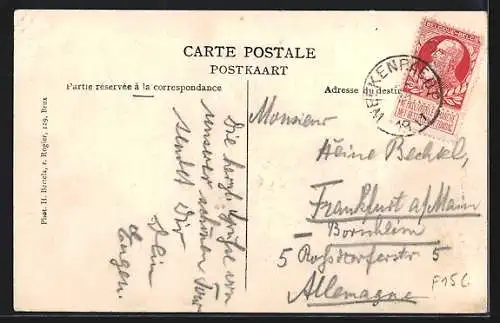 CARTE POSTALE
POSTKAART
Partie réservée à la correspondance
Adresse du desti
BELGIQUE-BELGIË
Phot. H. Bertels, r. Rogier, 129, Brux
Die herzl. Grüße von
unserer schönen Tour
sendet Dir
Dein
Eugen.
Monsieur
Heine Bechtel,
Frankfurt a/Main
Bornheim
5 Roßdorferstr 5
Allemagne
F15C